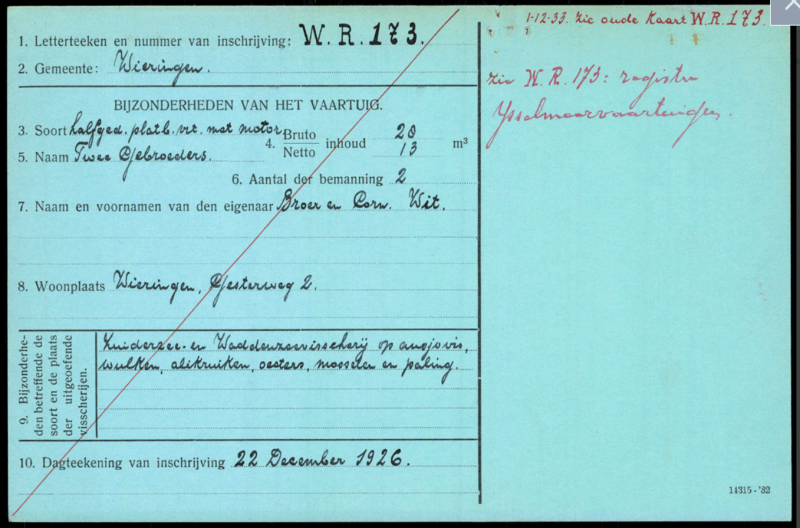 1. Letterteeken en nummer van inschrijving: W.R.173.
2. Gemeente: Wieringen.
BIJZONDERHEDEN VAN HET VAARTUIG.
3. Soort halfged. platb. vrt. met motor.
4. Bruto / Netto inhoud 20 / 13 m³
5. Naam Twee Gebroeders.
6. Aantal der bemanning 2
7. Naam en voornamen van den eigenaar Broer en Corn. Wit.
8. Woonplaats Wieringen, Oesterweg 2.
9. Bijzonderhe-
den betreffende de
soort en de plaats
der uitgeoefende
visscherijen.
Zuiderzee- en Waddenzeevisscherij op ansjovis,
wulken, alikruiken, oesters, mosselen en paling.
10. Dagteekening van inschrijving 22 December 1926.
1-12-33. zie oude kaart W.R.173.
zie W.R. 173: register
Ysselmeervaartuigen.
14315-'32